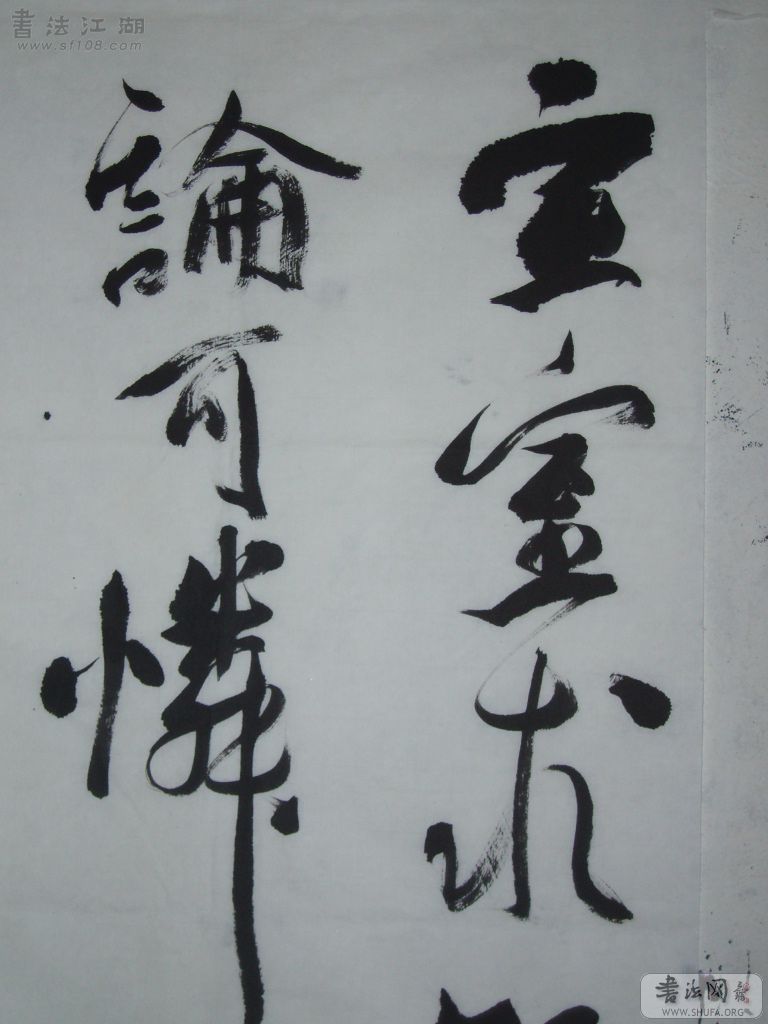 宣室求
論可憐
書法江湖
www.sf108.com
書法网
WWW.SHUFA.ORG